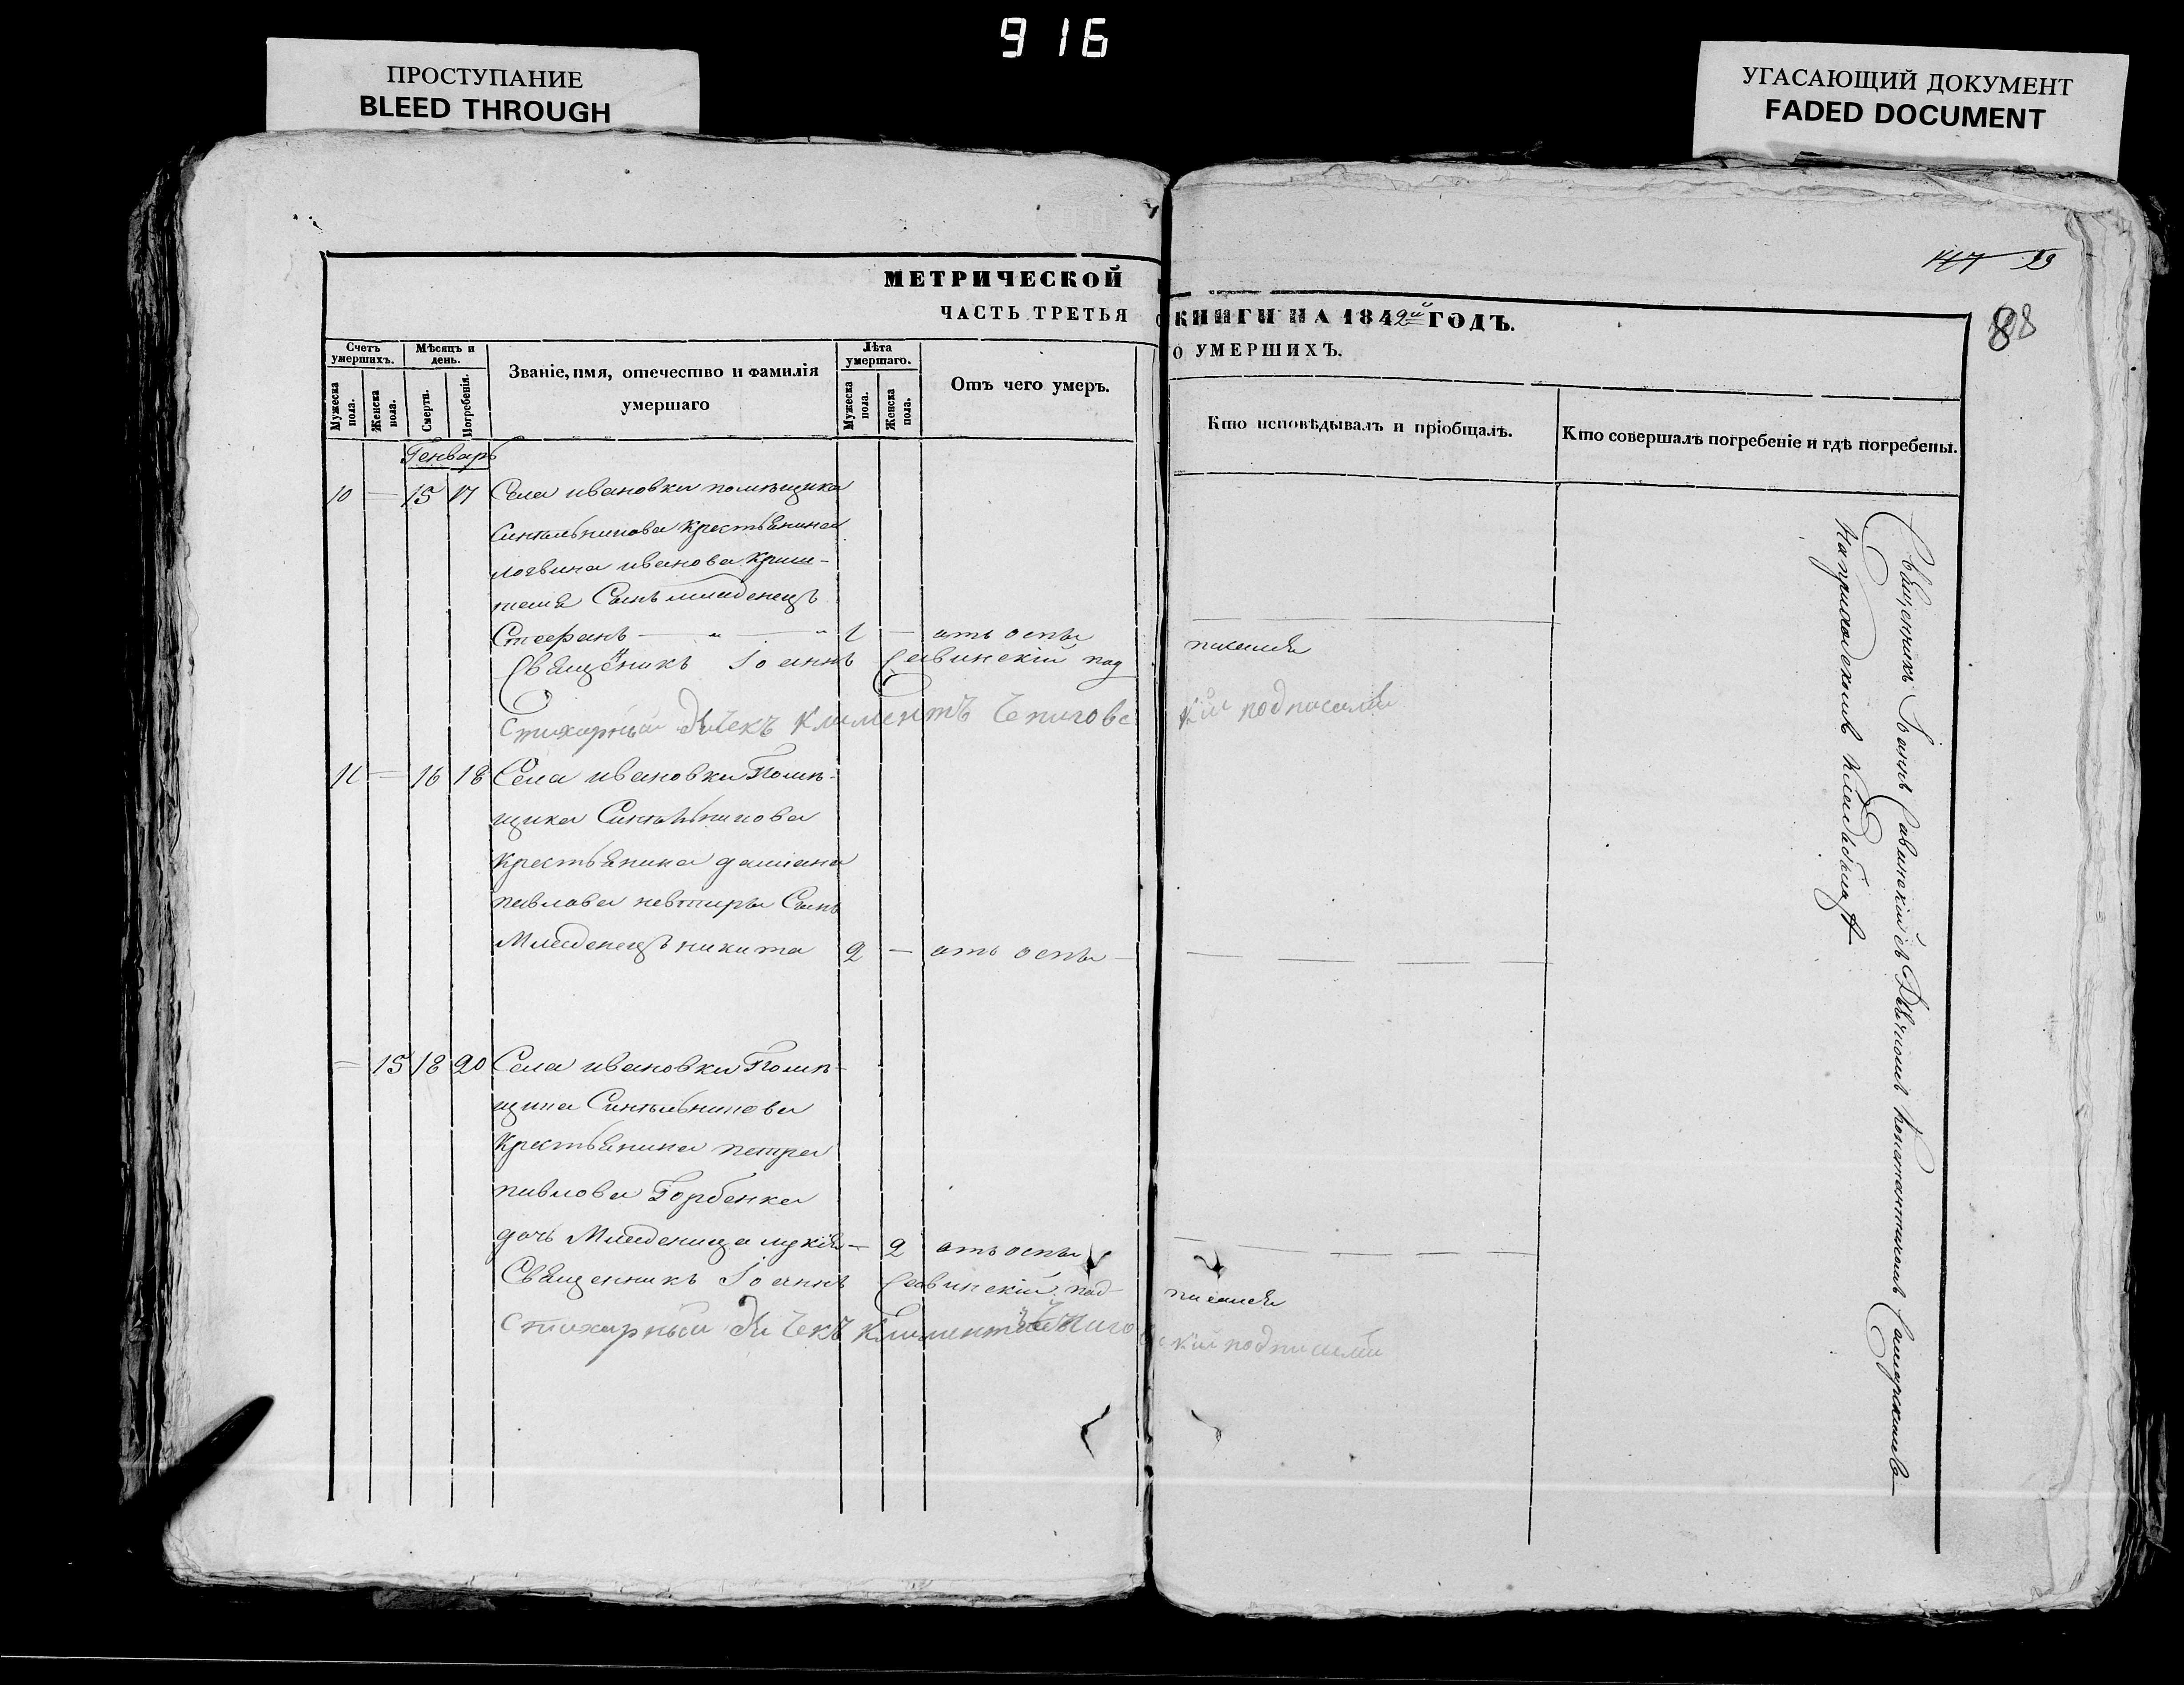 916
ПРОСТУПАНИЕ
BLEED THROUGH
УГАСАЮЩИЙ ДОКУМЕНТ
FADED DOCUMENT
147 29
88
МЕТРИЧЕСКОЙ КНИГИ НА 1842й ГОДЪ.
ЧАСТЬ ТРЕТЬЯ О УМЕРШИХЪ.
Счетъ умершихъ.
Мѣсяцъ и день.
Званіе, имя, отечество и фамилія умершаго
Лѣта умершаго.
Отъ чего умеръ.
Кто исповѣдывалъ и пріобщалъ.
Кто совершалъ погребеніе и гдѣ погребены.
Мужеска пола.
Женска пола.
Смерти.
Погребенія.
Мужеска пола.
Женска пола.
Генварь
10 — 15 17 Села ивановки помѣщика
Синельникова крестьянина
логвина иванова
Сынъ младенецъ
Стефанъ — 1 — отъ оспы
Священникъ Іоаннъ Савинскій подписался
Стихарный дьячекъ Климентъ Чепиговскій подписался
11 — 16 18 Села ивановки Помѣ-
щика Синельникова
крестьянина даміана
павлова Сынъ
Младенецъ никита 2 — отъ оспы —
— 15 18 20 Села ивановки Помѣ-
щика Синельникова
крестьянина петра
павлова Горбенка
дочь Младеница лукія — 2 отъ оспы
Священникъ Іоаннъ Савинскій подписался
Стихарный дьячекъ Климентъ Чепиговскій подписался
Священникъ Іоаннъ Савинскій съ Дьячкомъ Константиномъ Самарскимъ
На приходскомъ кладбищѣ